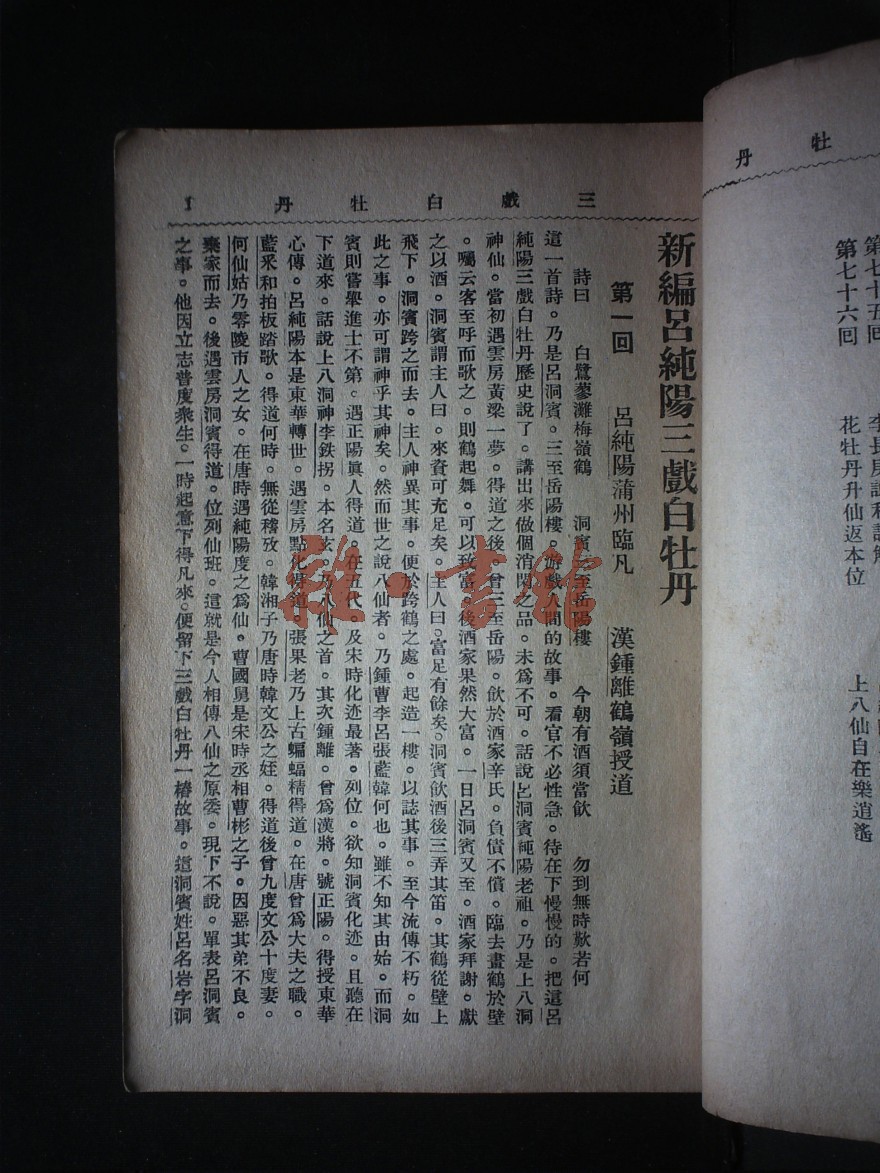 三戲白牡丹
1
新編呂純陽三戲白牡丹
第一回　呂純陽蒲州臨凡　漢鍾離鶴嶺授道
詩曰　白鷺蓼灘梅嶺鶴　洞賓三至岳陽樓　今朝有酒須當飲　勿到無時歎若何
這一首詩。乃是呂洞賓。三至岳陽樓。游戲人間的故事。看官不必性急。待在下慢慢的。把這呂
純陽三戲白牡丹歷史說了。講出來做個消閒之品。未為不可。話說呂洞賓純陽老祖。乃是上八洞
神仙。當初遇雲房黃梁一夢。得道之後。曾三至岳陽。飲於酒家辛氏。負債不償。臨去畫鶴於壁
。囑云客至呼而歌之。則鶴起舞。可以致富。後酒家果然大富。一日呂洞賓又至。酒家拜謝。獻
之以酒。洞賓謂主人曰。來資可充足矣。主人曰。富足有餘矣。洞賓飲酒後三弄其笛。其鶴從壁上
飛下。洞賓跨之而去。主人神異其事。便於跨鶴之處。起造一樓。以誌其事。至今流傳不朽。如
此之事。亦可謂神乎其神矣。然而世之說八仙者。乃鍾曹李呂張藍韓何也。雖不知其由始。而洞
賓則嘗舉進士不第。遇正陽眞人得道。在五代及宋時化迹最著。列位。欲知洞賓化迹。且聽在
下道來。話說上八洞神李鉄拐。本名玄。乃八仙之首。其次鍾離。曾為漢將。號正陽。得授東華
心傳。呂純陽本是東華轉世。遇雲房點化得道。張果老乃上古蝙蝠精得道。在唐曾為大夫之職。
藍釆和拍板踏歌。得道何時。無從稽攷。韓湘子乃唐時韓文公之姪。得道後曾九度文公十度妻。
何仙姑乃零陵市人之女。在唐時遇純陽度之為仙。曹國舅是宋時丞相曹彬之子。因惡其弟不良。
棄家而去。後遇雲房洞賓得道。位列仙班。這就是今人相傳八仙之原委。現下不說。單表呂洞賓
之事。他因立志普度衆生。一時起意下得凡來。便留下三戲白牡丹一樁故事。這洞賓姓呂名岩字洞
牡丹
第七十五回
第七十六回　花牡丹升仙返本位　上八仙自在樂逍遙
雜·書館